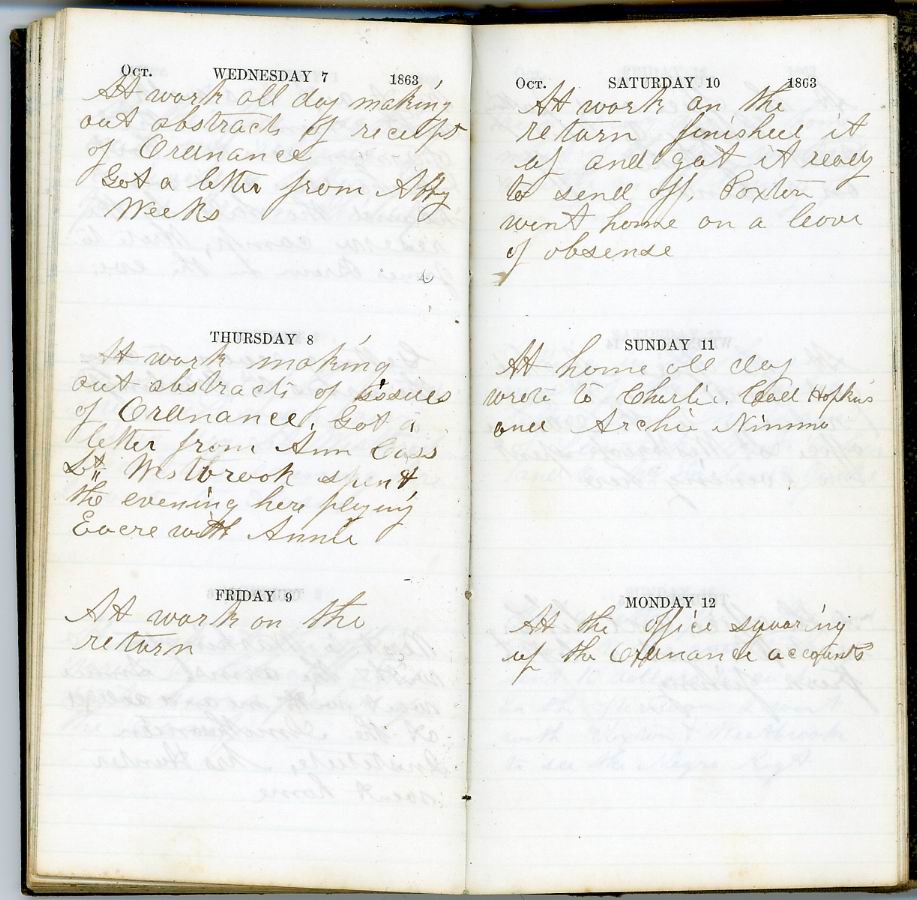 Oct. WEDNESDAY 7 1863
At work all day making
out abstracts of receipt
of Ordnance
Got a letter from Abby
Weeks
THURSDAY 8
At work making
out abstracts of issues
of Ordnance. Got a
letter from Ann Cass
Lt Westbrook spent
the evening here playing
Eucre with Annie
FRIDAY 9
At work on the
return
Oct. SATURDAY 10 1863
At work on the
return finished it
up and got it ready
to send off. Poxton
went home on a leave
of absense
SUNDAY 11
At home all day
wrote to Charlie. Hopkins
and Archie Nimmo
MONDAY 12
At the office squaring
up the Ordnance accounts
with
to see the Negro Regt